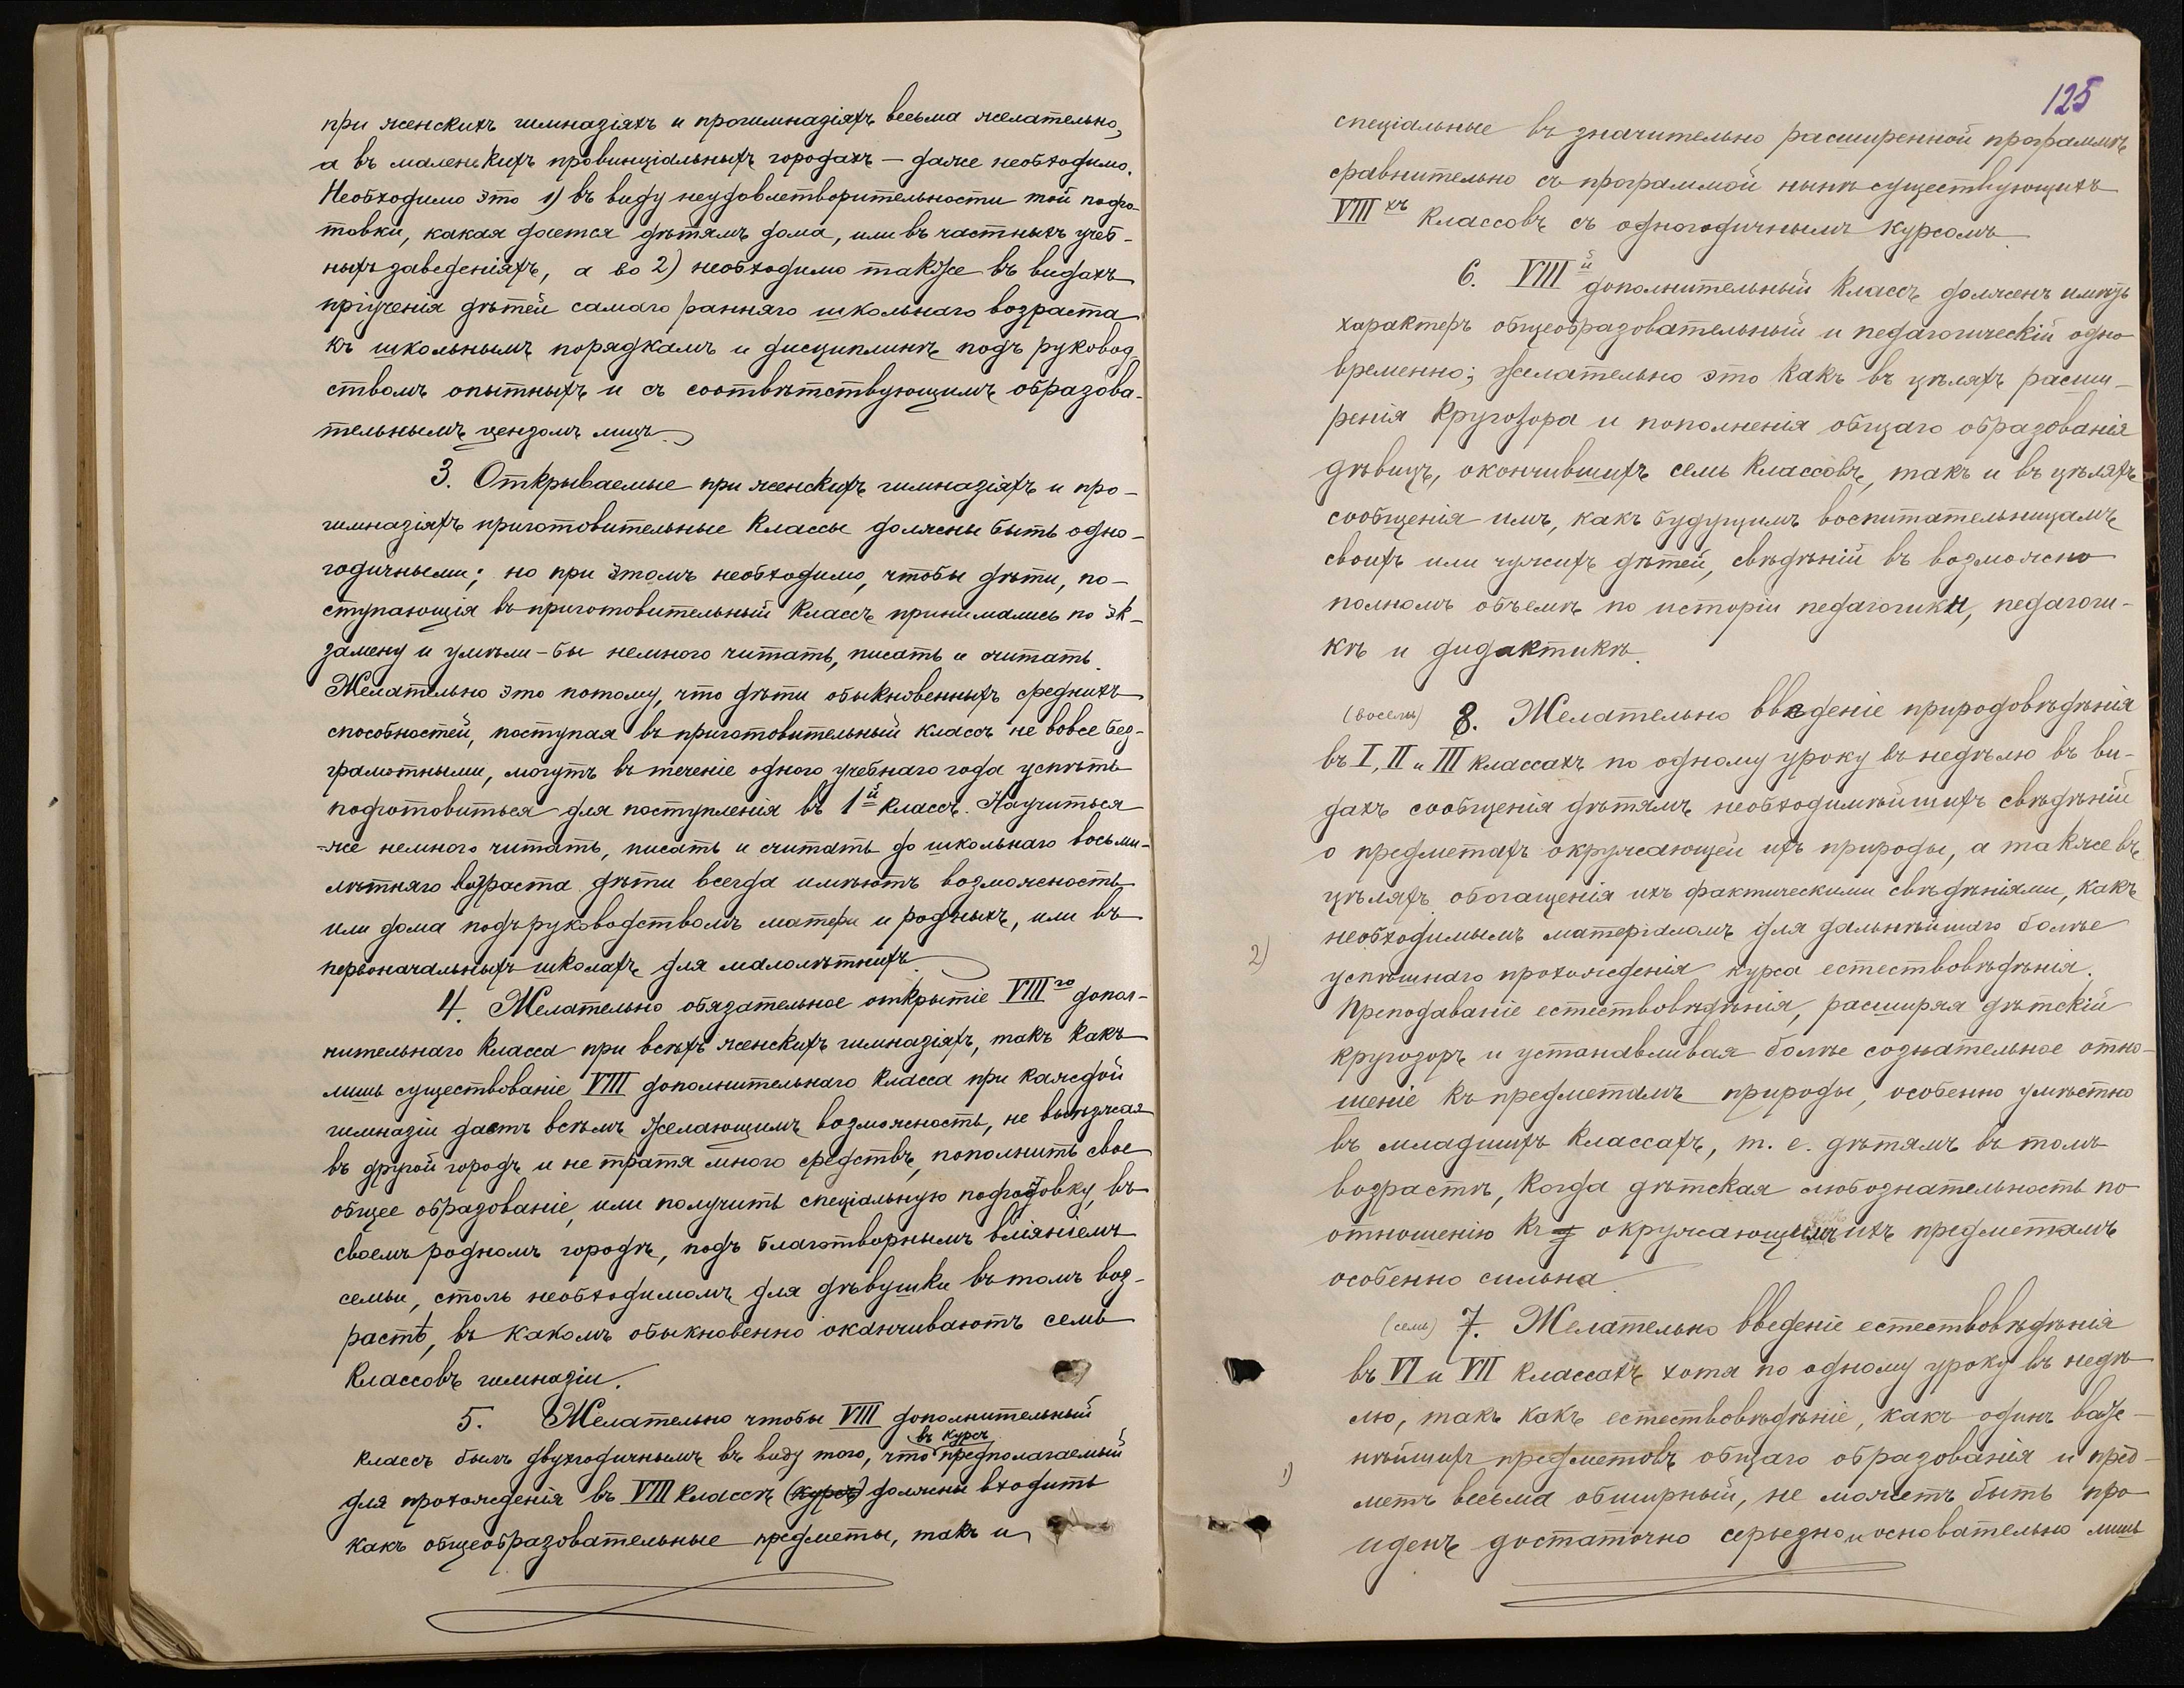 при женскихъ гимназіяхъ и прогимназіяхъ весьма желательно,
а въ маленькихъ провинціальныхъ городахъ — даже необходимо.
Необходимо это 1) въ виду неудовлетворительности той подго-
товки, какая дается дѣтямъ дома, или въ частныхъ учеб-
ныхъ заведеніяхъ, а во 2) необходимо также въ видахъ
пріученія дѣтей самаго ранняго школьнаго возраста
къ школьнымъ порядкамъ и дисциплинѣ подъ руковод-
ствомъ опытныхъ и съ соотвѣтствующимъ образова-
тельнымъ цензомъ лицъ.
3. Открываемые при женскихъ гимназіяхъ и про-
гимназіяхъ приготовительные классы должны быть одно-
годичными; но при этомъ необходимо, чтобы дѣти, по-
ступающія въ приготовительный классъ, принимались по эк-
замену и умѣли-бы немного читать, писать и считать.
Желательно это потому, что дѣти обыкновенныхъ среднихъ
способностей, поступая въ приготовительный классъ не вовсе без-
грамотными, могутъ въ теченіе одного учебнаго года успѣть
подготовиться для поступленія въ 1й классъ. Научиться
-же немного читать, писать и считать до школьнаго восьми-
лѣтняго возраста дѣти всегда имѣютъ возможность
или дома подъ руководствомъ матери и родныхъ, или въ
первоначальныхъ школахъ для малолѣтнихъ.
4. Желательно обязательное открытіе VIIIго допол-
нительнаго класса при всѣхъ женскихъ гимназіяхъ, такъ какъ
лишь существованіе VIII дополнительнаго класса при каждой
гимназіи дастъ всѣмъ желающимъ возможность, не выѣзжая
въ другой городъ и не тратя много средствъ, пополнить свое
общее образованіе, или получить спеціальную подготовку, въ
своемъ родномъ городѣ, подъ благотворнымъ вліяніемъ
семьи, столь необходимомъ для дѣвушки въ томъ воз-
растѣ, въ какомъ обыкновенно оканчиваютъ семь
классовъ гимназіи.
5. Желательно чтобы VIII дополнительный
въ курсъ
классъ былъ двухгодичнымъ въ виду того, что предполагаемый
для прохожденія въ VIII классѣ (курсъ) должны входить
какъ общеобразовательные предметы, такъ и
125
спеціальные въ значительно расширенной программѣ
сравнительно съ программой нынѣ существующихъ
VIIIхъ классовъ съ одногодичнымъ курсомъ.
6. VIIIй дополнительный классъ долженъ имѣть
характеръ общеобразовательный и педагогическій одно-
временно; желательно это какъ въ цѣляхъ расши-
ренія кругозора и пополненія общаго образованія
дѣвицъ, окончившихъ семь классовъ, такъ и въ цѣляхъ
сообщенія имъ, какъ будущимъ воспитательницамъ
своихъ или чужихъ дѣтей, свѣдѣній въ возможно
полномъ объемѣ по исторіи педагогики, педагоги-
кѣ и дидактикѣ.
(восемь) 8. Желательно введеніе природовѣдѣнія
въ I, II и III классахъ по одному уроку въ недѣлю въ ви-
дахъ сообщенія дѣтямъ необходимѣйшихъ свѣдѣній
о предметахъ окружающей ихъ природы, а также въ
цѣляхъ обогащенія ихъ фактическими свѣдѣніями, какъ
необходимымъ матеріаломъ для дальнѣйшаго болѣе
2)
успѣшнаго прохожденія курса естествовѣдѣнія.
Преподаваніе естествовѣдѣнія, расширяя дѣтскій
кругозоръ и устанавливая болѣе сознательное отно-
шеніе къ предметамъ природы, особенно умѣстно
въ младшихъ классахъ, т. е. дѣтямъ въ томъ
возрастѣ, когда дѣтская любознательность по
отношенію къ окружающимъ ихъ предметамъ
особенно сильна.
(семь) 7. Желательно введеніе естествовѣдѣнія
въ VI и VII классахъ хотя по одному уроку въ недѣ-
лю, такъ какъ естествовѣдѣніе, какъ одинъ важ-
нѣйшихъ предметовъ общаго образованія и пред-
1)
метъ весьма обширный, не можетъ быть про-
йденъ достаточно серьезно и основательно лишь